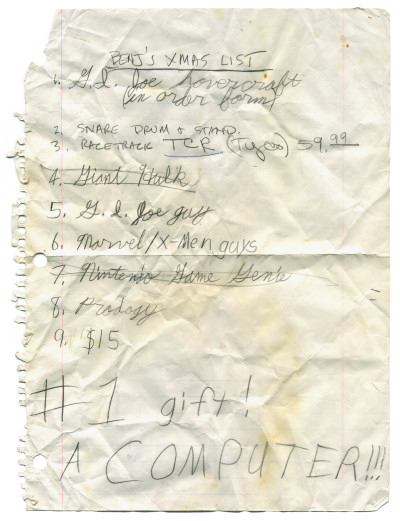 BENJ'S XMAS LIST
1. G.I. Joe hovercraft
(in order form)
2. SNARE DRUM + STAND.
3. RACETRACK TCR (Tyco) 59.99
4. Giant Hulk
5. G.I. Joe guy
6. Marvel/X-Men guys
7. Nintendo Game Genie
8. Prodogy
9. $15
#1 gift!
A COMPUTER!!!